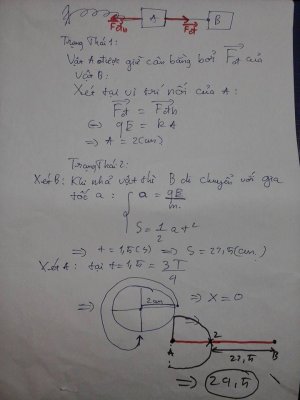 Fđh A Fđt Fđt B
Trạng Thái 1:
Vật A được giữ cân bằng bởi Fđt của
vật B:
Xét tại vị trí nối của A:
Fđt = Fđh
⇔ qE = kA
⇒ A = 2(cm)
Trạng Thái 2:
Xét B: Khi nhả vật thì B di chuyển với gia
tốc a: a = qE/m
S = 1/2 a t²
⇒ t = 1,5(s) ⇒ S = 27,5(cm)
Xét A: tại t = 1,5 = 3T/4
2cm ⇒ X = 0
⇒
A 2 B
27,5
⇒ 29,5